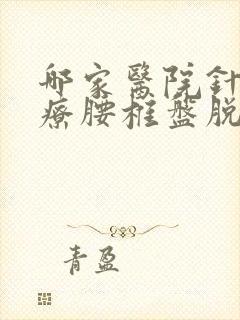 哪家醫院針
療腰椎盤脫
青盈